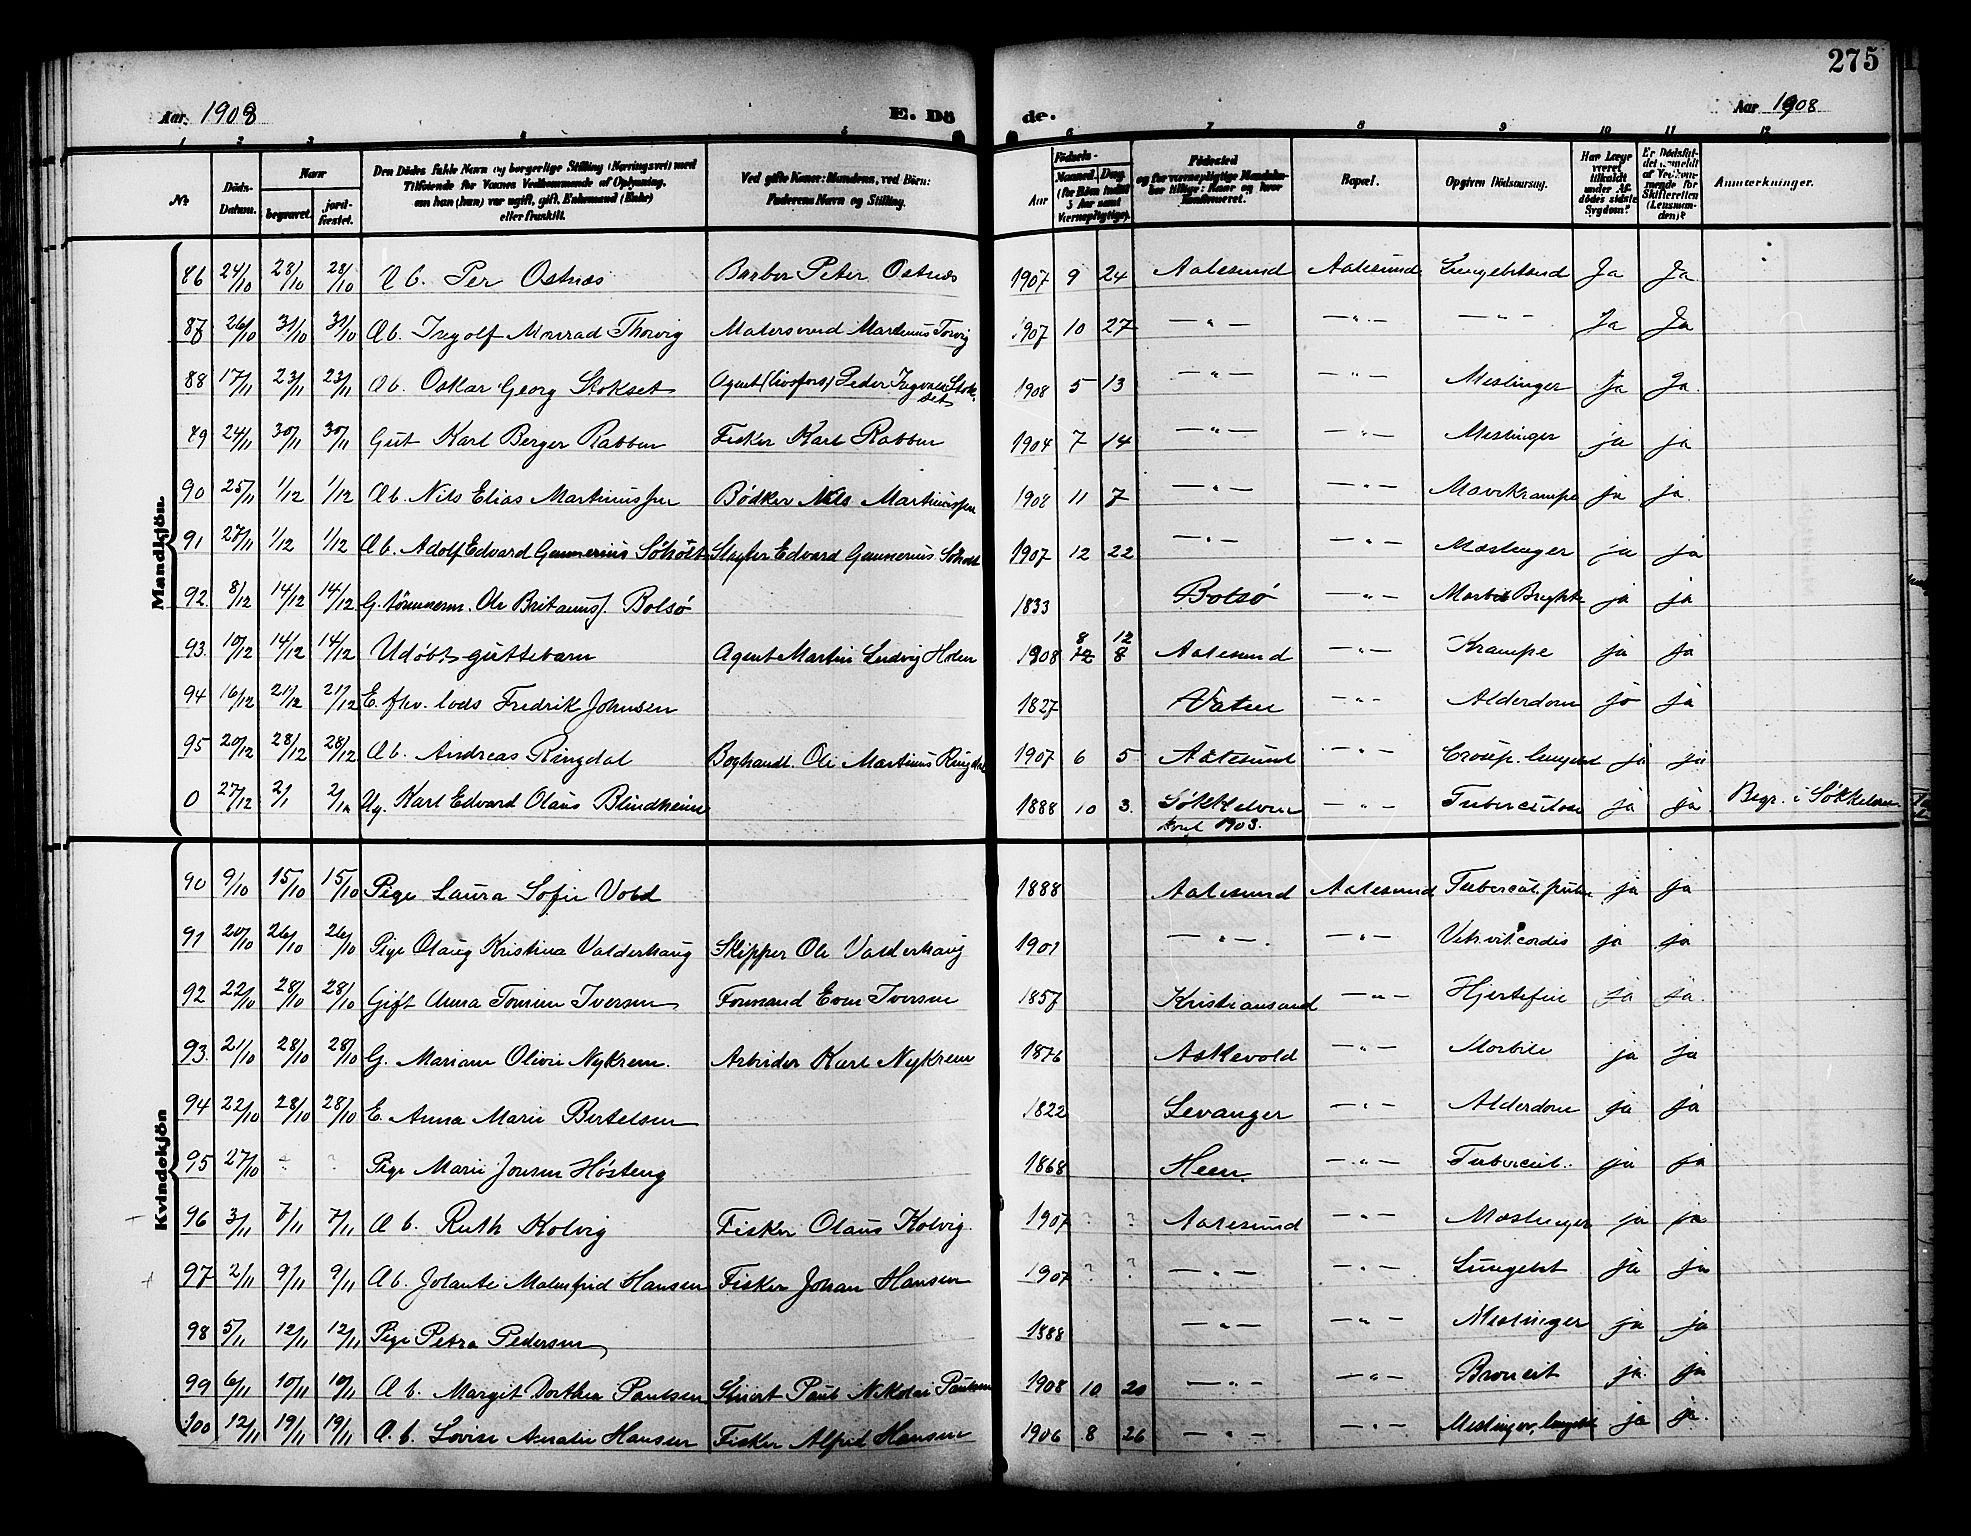 275
Aar. 1908 E. Dö de. Aar 1908
1 2 3 4 5 6 7 8 9 10 11 12
№ Döds-Datum. Naar begravet. jordfæstet. Den Dödes fulde Navn og borgerlige Stilling (Næringsvei) med Tilföiende for Voxnes Vedkommende af Oplysning, om han (hun) var ugift, gift, Enkemand (Enke) eller fraskilt. Ved gifte Koner: Mandens, ved Börn: Faderens Navn og Stilling. Födsels- Aar Maaned. Dag. (for Börn indtil 5 Aar samt Værnepligtige). Födested og for værnepligtige Mandskaber tillige: Naar og hvor konfirmeret. Bopæl. Opgiven Dödsaarsag. Har Læge været tilkaldt under Afdödes sidste Sygdom? Er Dödsfaldet anmeldt af Vedkommende for Skifteretten (Lensmanden)? Anmærkninger.
Mandkjön.
86 24/10 28/10 28/10 Æb. Per Ostnes Barber Peter Ostnes 1907 9 24 Aalesund Aalesund Lungebetænd Ja Ja
87 26/10 31/10 31/10 Æb. Ingolf Monrad Thorvig Matersvend Martinius Torvig 1907 10 27 — " — — " — — " — Ja Ja
88 17/11 23/11 23/11 Æb. Oskar Georg Stokset Agent (Livsfors) Peder Ingvald Stokset 1908 5 13 — " — — " — Meslinger Ja Ja
89 24/11 30/11 30/11 Gut Karl Berger Rabben Fisker Karl Rabben 1904 7 14 — " — — " — Meslinger ja ja
90 25/11 1/12 1/12 Æb. Nils Elias Martinussen Bødker Nils Martinussen 1908 11 7 — " — — " — Mavekrampe ja ja
91 27/11 1/12 1/12 Æb. Adolf Edvard Gunnerius Søholt Slagter Edvard Gunnerius Søholt 1907 12 22 — " — — " — Mæslinger ja ja
92 8/12 14/12 14/12 G. tømmerm. Ole Britanus J. Bolsø 1833 Bolsø — " — Morbus Brightii ja ja
93. 10/12 14/12 14/12 Udøbt guttebarn Agent Martin Ludvig Holen 1908 8 12 12 8 Aalesund — " — Krampe ja ja
94 16/12 21/12 21/12 E. fhv. lods Fredrik Johnsen 1827 Vatne — " — Alderdom ja ja
95 20/12 28/12 28/12 Æb. Andreas Ringdal Boghandl. Ole Martinus Ringdal 1907 6 5 Aalesund — " — Croup. lungebet ja ja
0 27/12 2/1 2/1 Ug. Karl Edvard Olaus Blindheim 1888 10 3. Søkkelven konf 1903. — " — Tuberculose ja ja Begr. i Søkkelven
Kvindekjön
90 9/10 15/10 15/10 Pige Laura Sofie Vold 1888 Aalesund Aalesund Tubercul. pulm ja ja
91 20/10 26/10 26/10 Pige Olaug Kristina Valderhaug Skipper Ole Valderhaug 1901 — " — — " — Vit. cordis ja ja
92 22/10 28/10 28/10 Gift Anna Tomine Iversen Formand Even Iversen 1857 Kristiansand — " — Hjertefeil ja ja.
93. 21/10 28/10 28/10 G. Mariane Olivie Nykrem. Arbeider Karl Nykrem 1876 Askevold — " — Morbili ja ja
94 22/10 28/10 28/10 E. Anna Marie Bertelsen 1822 Levanger — " — Alderdom ja ja
95 27/10 ? ? Pige Marie Jonsen Høsteng 1868 Heen. — " — Tubercul. ja ja
96 3/11 7/11 7/11 Æb. Ruth Kolvig Fisker Olaus Kolvig. 1907 ? ? Aalesund — " — Mæslinger ja ja
97 2/11 9/11 9/11 Æb. Jolante Malmfrid Hansen Fisker Johan Hansen 1907 ? ? — " — — " — Lungebet ja ja
98 5/11 12/11 12/11 Pige Petra Pedersen 1888 — " — — " — Meslinger ja ja
99 6/11 10/11 10/11 Æb. Margit Dorthea Paulsen Stuert Paul Nikolai Paulsen 1908 10 20 — " — — " — Broncit ja. ja
100 12/11 19/11 19/11 Æ.b. Lovise Amalie Hansen Fisker Alfred Hansen 1906 8 26 — " — — " — Meslinger, lungebet ja ja.